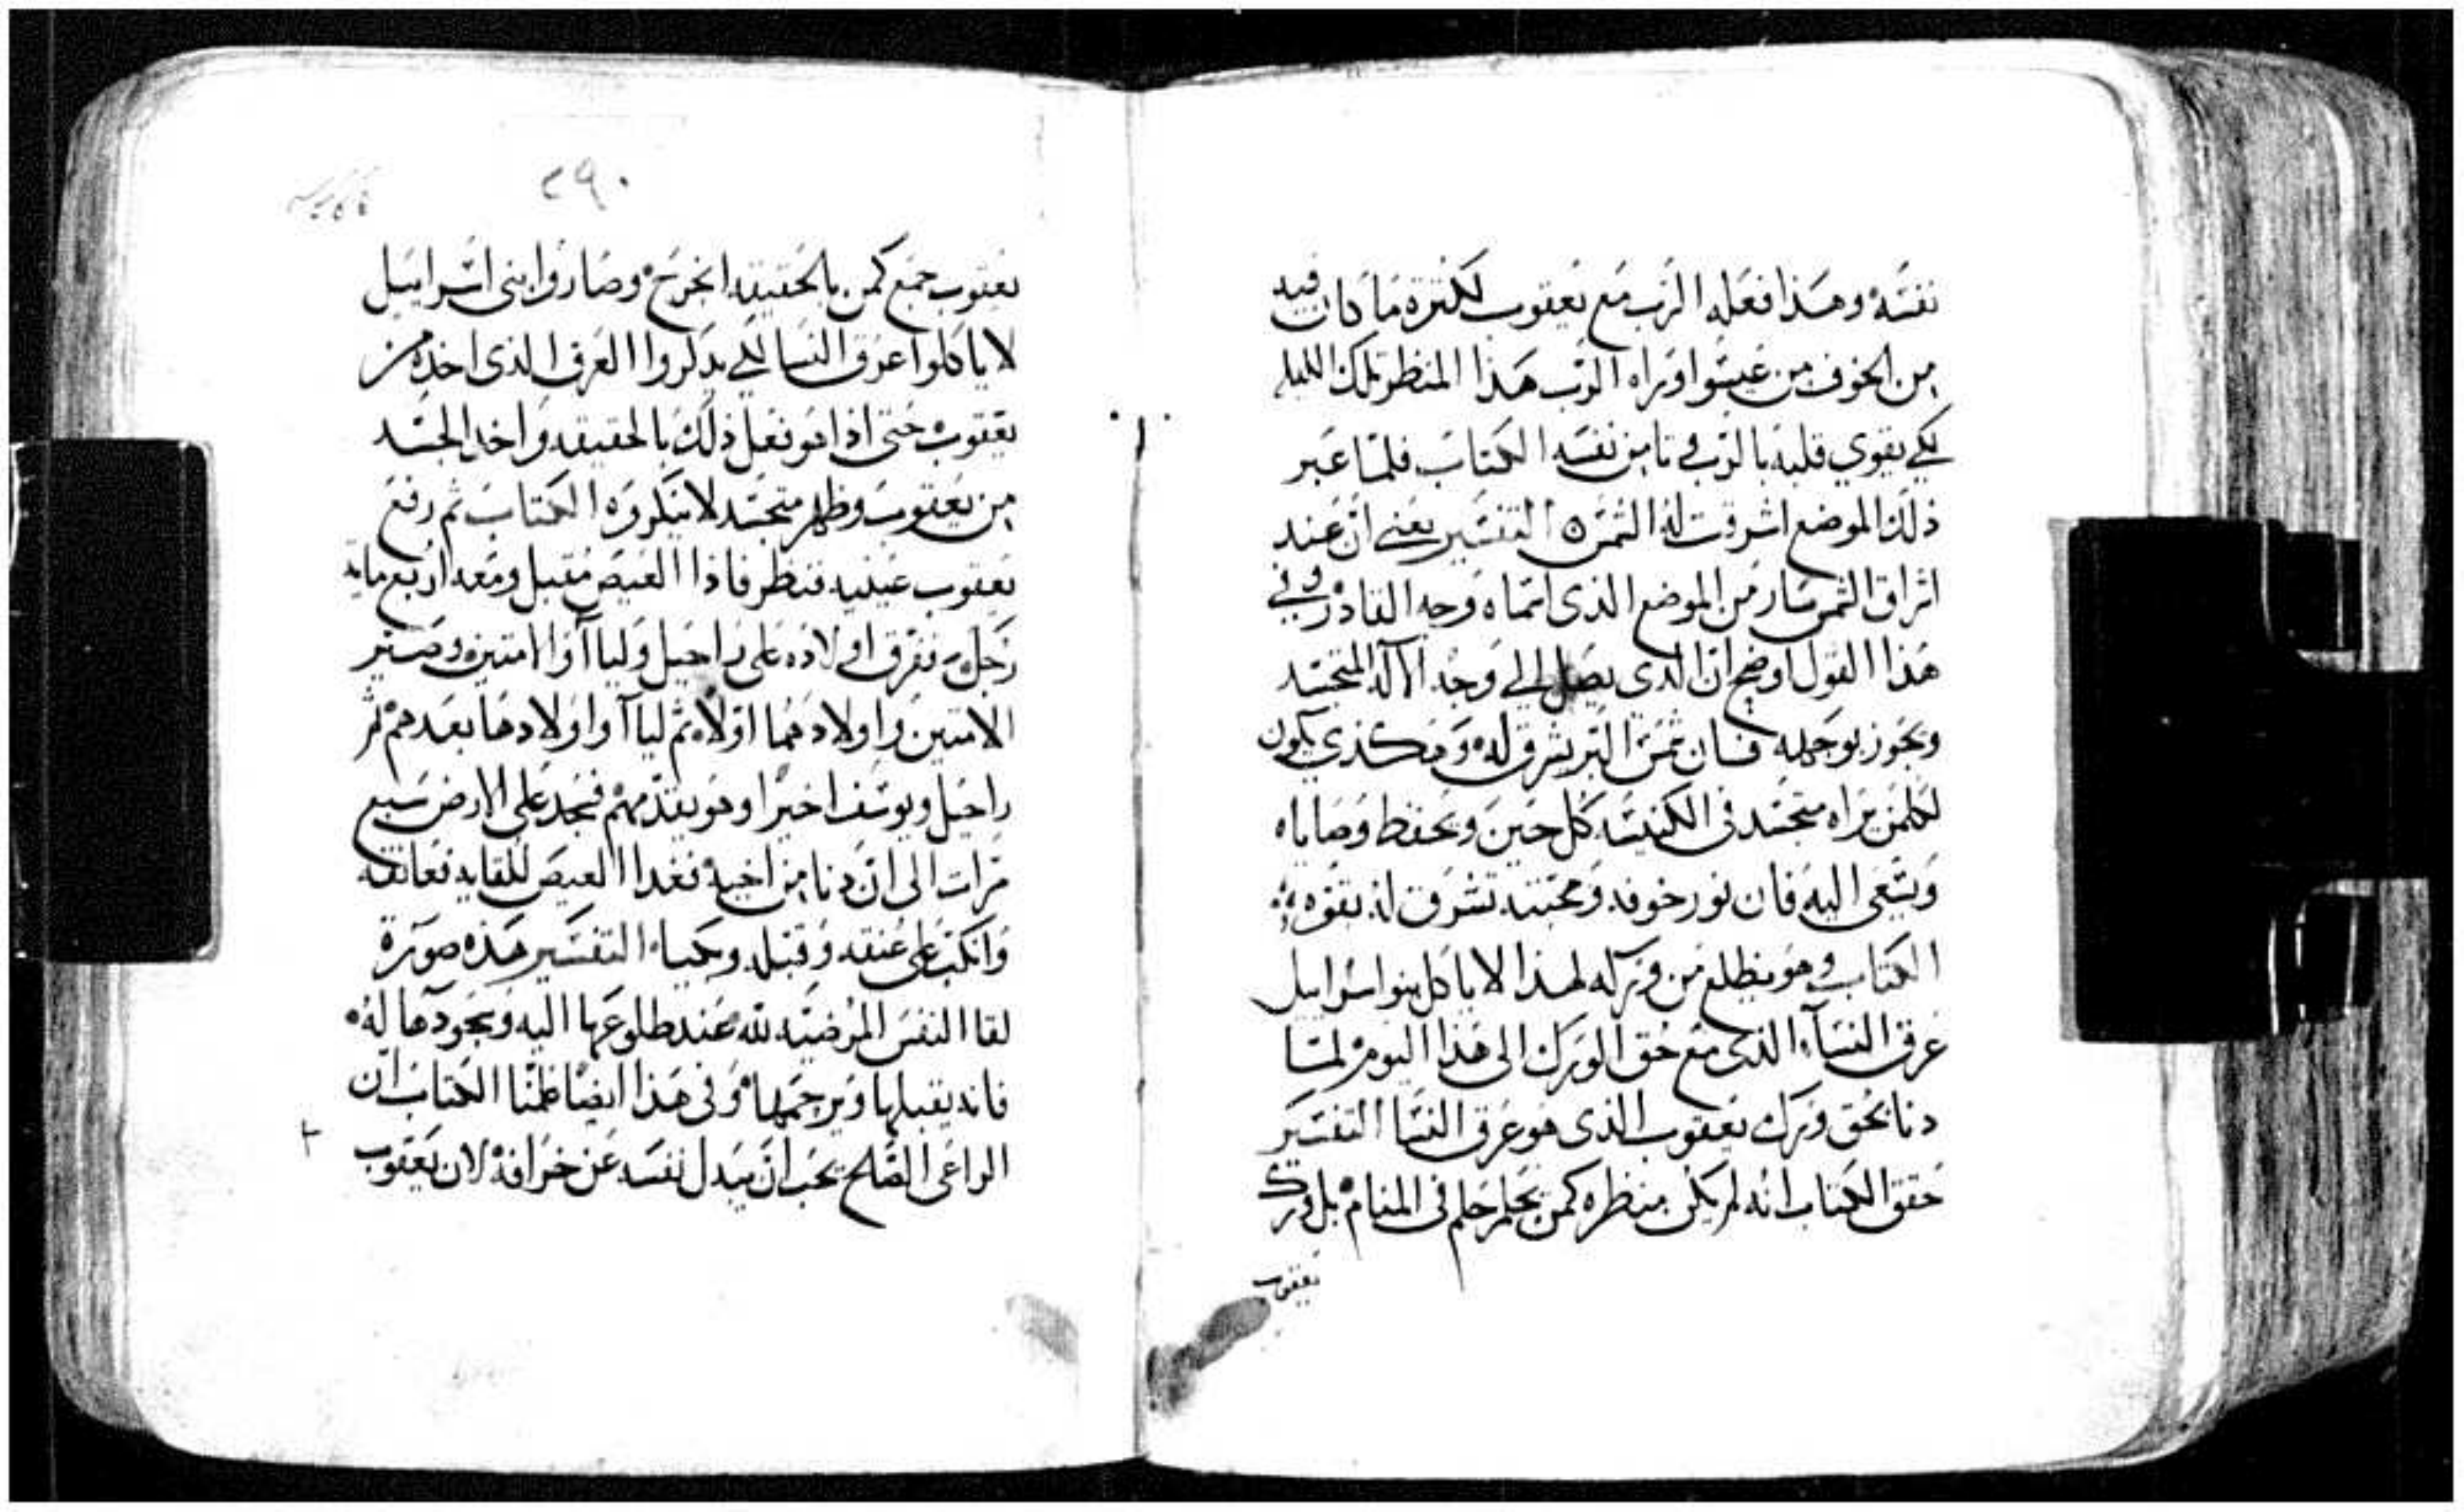 نفسه وهذا فعله الرب مع يعقوب لكثرة ما كان فيه
من الخوف من عيسوا وراه الرب هذا المنظر تلك الليله
لكي يقوي قلبه بالرب ويامن نفسه الكتاب فلما عبر
ذلك الموضع اشرقت له الشمس ۞ التفسير يعني ان عند
اشراق الشمس سار من الموضع الذي اسماه وجه القادر وفي
هذا القول اوضح ان الذي يصل الي وجه الاله المتجسد
ويجوز بوجهه فان شمس البر يشرق له وهكذي يكون
لكلمن يراه متجسد في الكنيسه كل حين ويحفظ وصاياه
ويسعى اليه فان نور خوفه ومحبته تشرق له بقوه
الكتاب وهو يظلع من وركه لهذا لا ياكل بنو اسراييل
عرق النساء الذي مع حق الورك الى هذا اليوم لما
دنا بحق ورك يعقوب الذي هو عرق النسا التفسير
حقق الكتاب انه لم يكن منظره كمن يحلم حلم في المنام بل ورك
يعقوب
٢٩٠
يعقوب جمع كمن بالحقيقه انجرح وصاروا بني اسراييل
لا ياكلوا عرق النسا لكي يدكروا العرق الذي اخذه من
يعقوب حتى اذا هو نفعل ذلك بالحقيقه واخد الجسد
من يعقوب وظهر متجسد لا ينكروه الكتاب ثم رفع
يعقوب عينيه فنظر فاذا العيص مقبل ومعه اربع مايه
رجل ففرق اولاده على راحيل وليا آ والامتين وصير
الامتين واولادهما اولا ثم ليا آ واولادها بعدهم ثم
راحيل ويوسف اخيرا وهو يقدمهم فسجد على الارض سبع
مرات الى ان دنا من اخيه فغدا العيص للقايه فعانقه
وانكب على عنقه وقبله وبكيا التفسير هذه صورة
لقا النفس المرضيه لله عند طلوعها اليه وسجودها له
فانه يقبلها ويرحمها وفي هذا ايضا علمنا الكتاب ان
الراعي الصالح يجب ان يبدل نفسه عن خرافه لان يعقوب